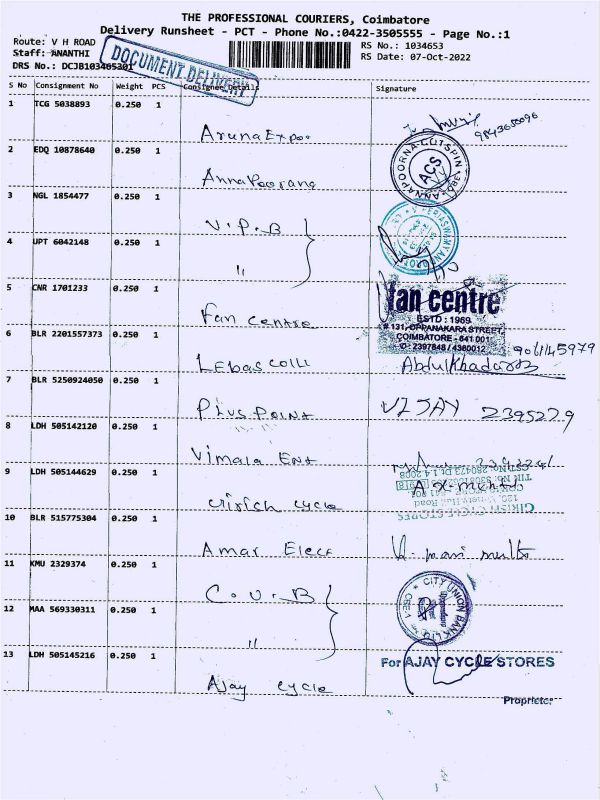 THE PROFESSIONAL COURIERS, Coimbatore
Delivery Runsheet - PCT - Phone No.:0422-3505555 - Page No.:1
Route: V H ROAD
RS No.: 1034653
Staff: ANANTHI
RS Date: 07-Oct-2022
DRS No.: DCJB103465301
DOCUMENT DELIVERY
S No Consignment No Weight PCS Consignee Details Signature
1 TCG 5038893 0.250 1
Aruna Expo
2 EDQ 10878640 0.250 1
Annapoorana
ANNAPOORNA COTSPIN
ACS
3 NGL 1854477 0.250 1
V.P.B
4 UPT 6042148 0.250 1
"
5 CNR 1701233 0.250 1
Fan Centre
fan centre
ESTD : 1969
# 131, OPPANAKARA STREET,
COIMBATORE - 641 001
6 BLR 2201557373 0.250 1
Lebas Colli
9061145979
7 BLR 5250924050 0.250 1
Plus Point
VIJAY 2395279
8 LDH 505142120 0.250 1
Vimala Ent
9 LDH 505144629 0.250 1
Girich cycle
GIRISH CYCLE STORES
10 BLR 515775304 0.250 1
Amar Elecc
11 KMU 2329374 0.250 1
C.U.B
CITY UNION BANK LTD
12 MAA 569330311 0.250 1
"
13 LDH 505145216 0.250 1
Ajay cycle
For AJAY CYCLE STORES
Proprietor